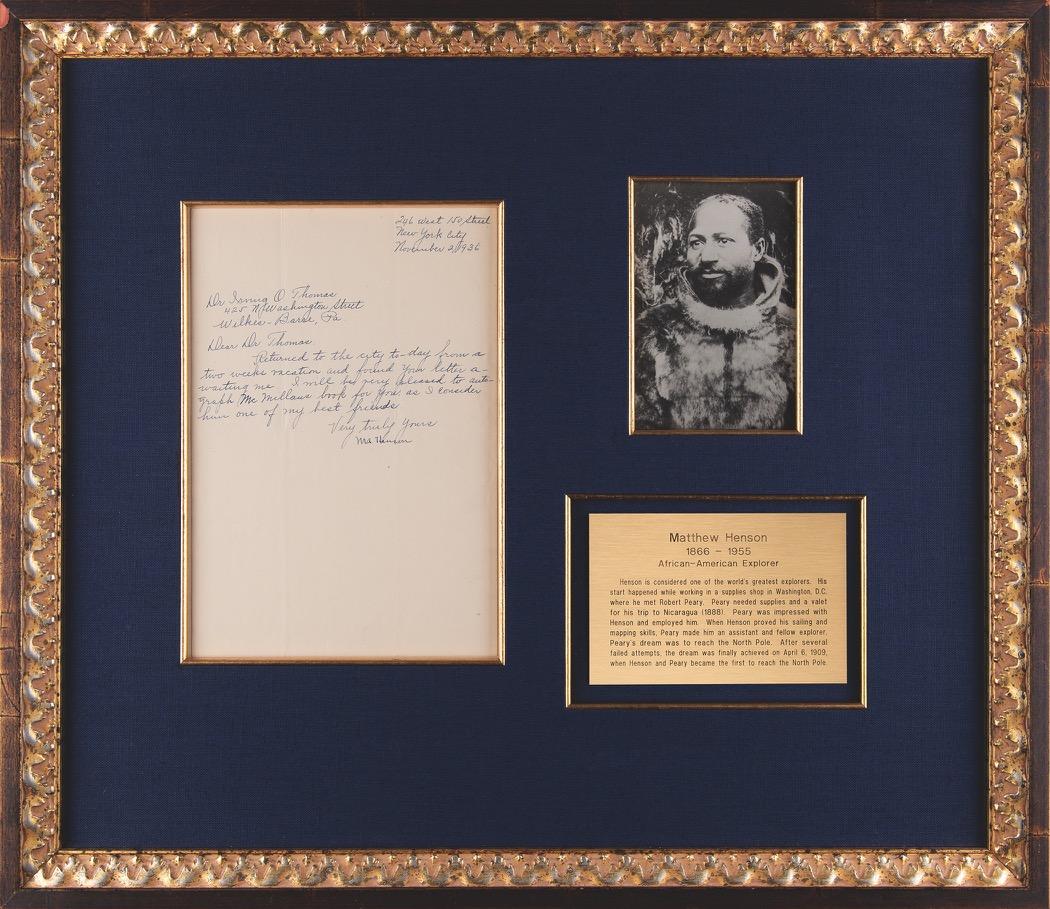 246 West 150 Street
New York City
November 2, 1936
Dr Irving O Thomas
425 N. Washington Street
Wilkes-Barre, Pa
Dear Dr Thomas
Returned to the city to-day from a
two weeks vacation and found your letter a-
waiting me I will be very pleased to auto-
graph Mc Millans book for you. as I consider
him one of my best friends
Very truly Yours
MA Henson
Matthew Henson
1866 – 1955
African-American Explorer
Henson is considered one of the world's greatest explorers. His
start happened while working in a supplies shop in Washington, D.C.
where he met Robert Peary. Peary needed supplies and a valet
for his trip to Nicaragua (1888). Peary was impressed with
Henson and employed him. When Henson proved his sailing and
mapping skills, Peary made him an assistant and fellow explorer.
Peary's dream was to reach the North Pole. After several
failed attempts, the dream was finally achieved on April 6, 1909,
when Henson and Peary became the first to reach the North Pole.